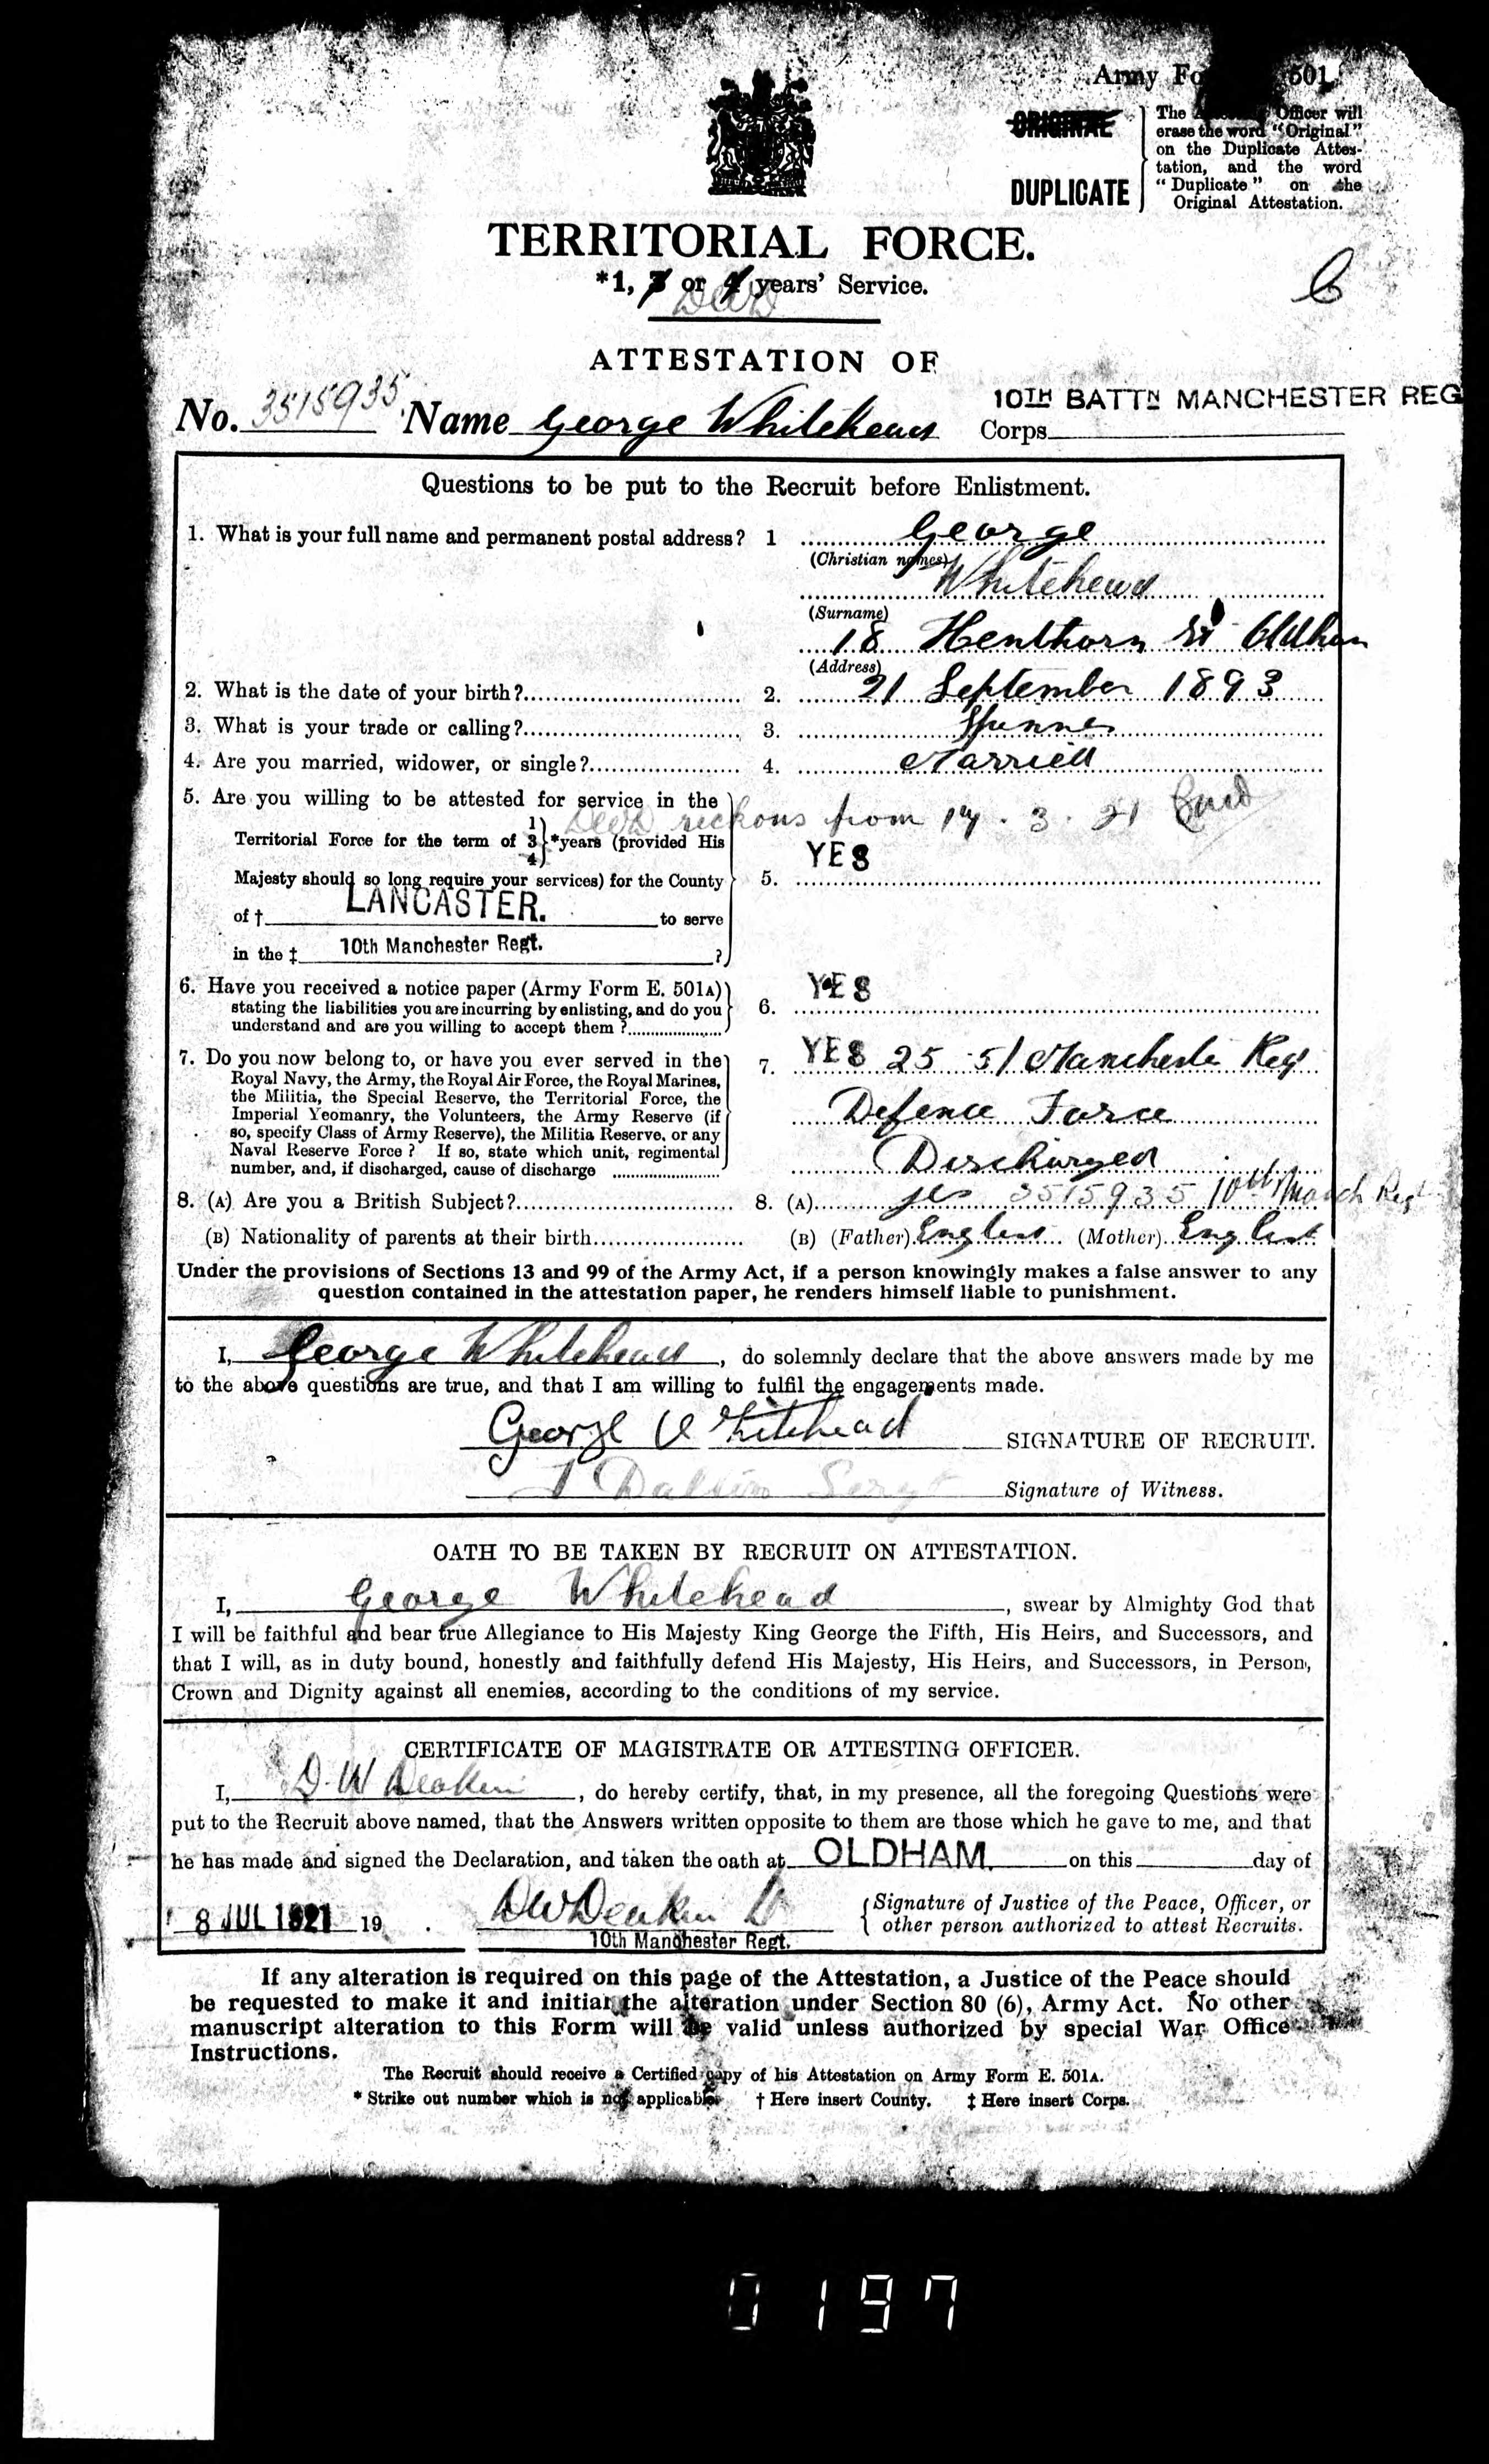 Army Fo 501
ORIGINAL
DUPLICATE
The Officer will
erase the word "Original"
on the Duplicate Attes-
tation, and the word
"Duplicate" on the
Original Attestation.
TERRITORIAL FORCE.
*1, 3 or 4 years' Service.
DWD
ATTESTATION OF
10TH BATTN MANCHESTER REG
No. 3515935 Name George Whitehead Corps
Questions to be put to the Recruit before Enlistment.
1. What is your full name and permanent postal address? 1 George
(Christian names)
Whitehead
(Surname)
18 Henthorn St Oldham
(Address)
2. What is the date of your birth? 2. 21 September 1893
3. What is your trade or calling? 3. Spinner
4. Are you married, widower, or single? 4. Married
5. Are you willing to be attested for service in the
DWD reckons from 14.3.21
Territorial Force for the term of 1 3 4 *years (provided His
YES
Majesty should so long require your services) for the County 5.
of † LANCASTER. to serve
in the ‡ 10th Manchester Regt. ?
6. Have you received a notice paper (Army Form E. 501A) YES
stating the liabilities you are incurring by enlisting, and do you 6.
understand and are you willing to accept them ?
7. Do you now belong to, or have you ever served in the 7. YES 25 51 Manchester Reg
Royal Navy, the Army, the Royal Air Force, the Royal Marines,
the Militia, the Special Reserve, the Territorial Force, the
Imperial Yeomanry, the Volunteers, the Army Reserve (if Defence Force
so, specify Class of Army Reserve), the Militia Reserve, or any
Naval Reserve Force ? If so, state which unit, regimental Discharged
number, and, if discharged, cause of discharge
8. (A) Are you a British Subject? 8. (A) yes 3515935 10th Manch Regt
(B) Nationality of parents at their birth (B) (Father) English (Mother) English
Under the provisions of Sections 13 and 99 of the Army Act, if a person knowingly makes a false answer to any
question contained in the attestation paper, he renders himself liable to punishment.
I, George Whitehead, do solemnly declare that the above answers made by me
to the above questions are true, and that I am willing to fulfil the engagements made.
George Whitehead SIGNATURE OF RECRUIT.
Sergt Signature of Witness.
OATH TO BE TAKEN BY RECRUIT ON ATTESTATION.
I, George Whitehead, swear by Almighty God that
I will be faithful and bear true Allegiance to His Majesty King George the Fifth, His Heirs, and Successors, and
that I will, as in duty bound, honestly and faithfully defend His Majesty, His Heirs, and Successors, in Person,
Crown and Dignity against all enemies, according to the conditions of my service.
CERTIFICATE OF MAGISTRATE OR ATTESTING OFFICER.
I, D. W Deakin, do hereby certify, that, in my presence, all the foregoing Questions were
put to the Recruit above named, that the Answers written opposite to them are those which he gave to me, and that
he has made and signed the Declaration, and taken the oath at OLDHAM. on this day of
8 JUL 1921 19 . DWDeakin
Signature of Justice of the Peace, Officer, or
other person authorized to attest Recruits.
10th Manchester Regt.
If any alteration is required on this page of the Attestation, a Justice of the Peace should
be requested to make it and initial the alteration under Section 80 (6), Army Act. No other
manuscript alteration to this Form will be valid unless authorized by special War Office
Instructions.
The Recruit should receive a Certified copy of his Attestation on Army Form E. 501A.
* Strike out number which is not applicable. † Here insert County. ‡ Here insert Corps.
0197